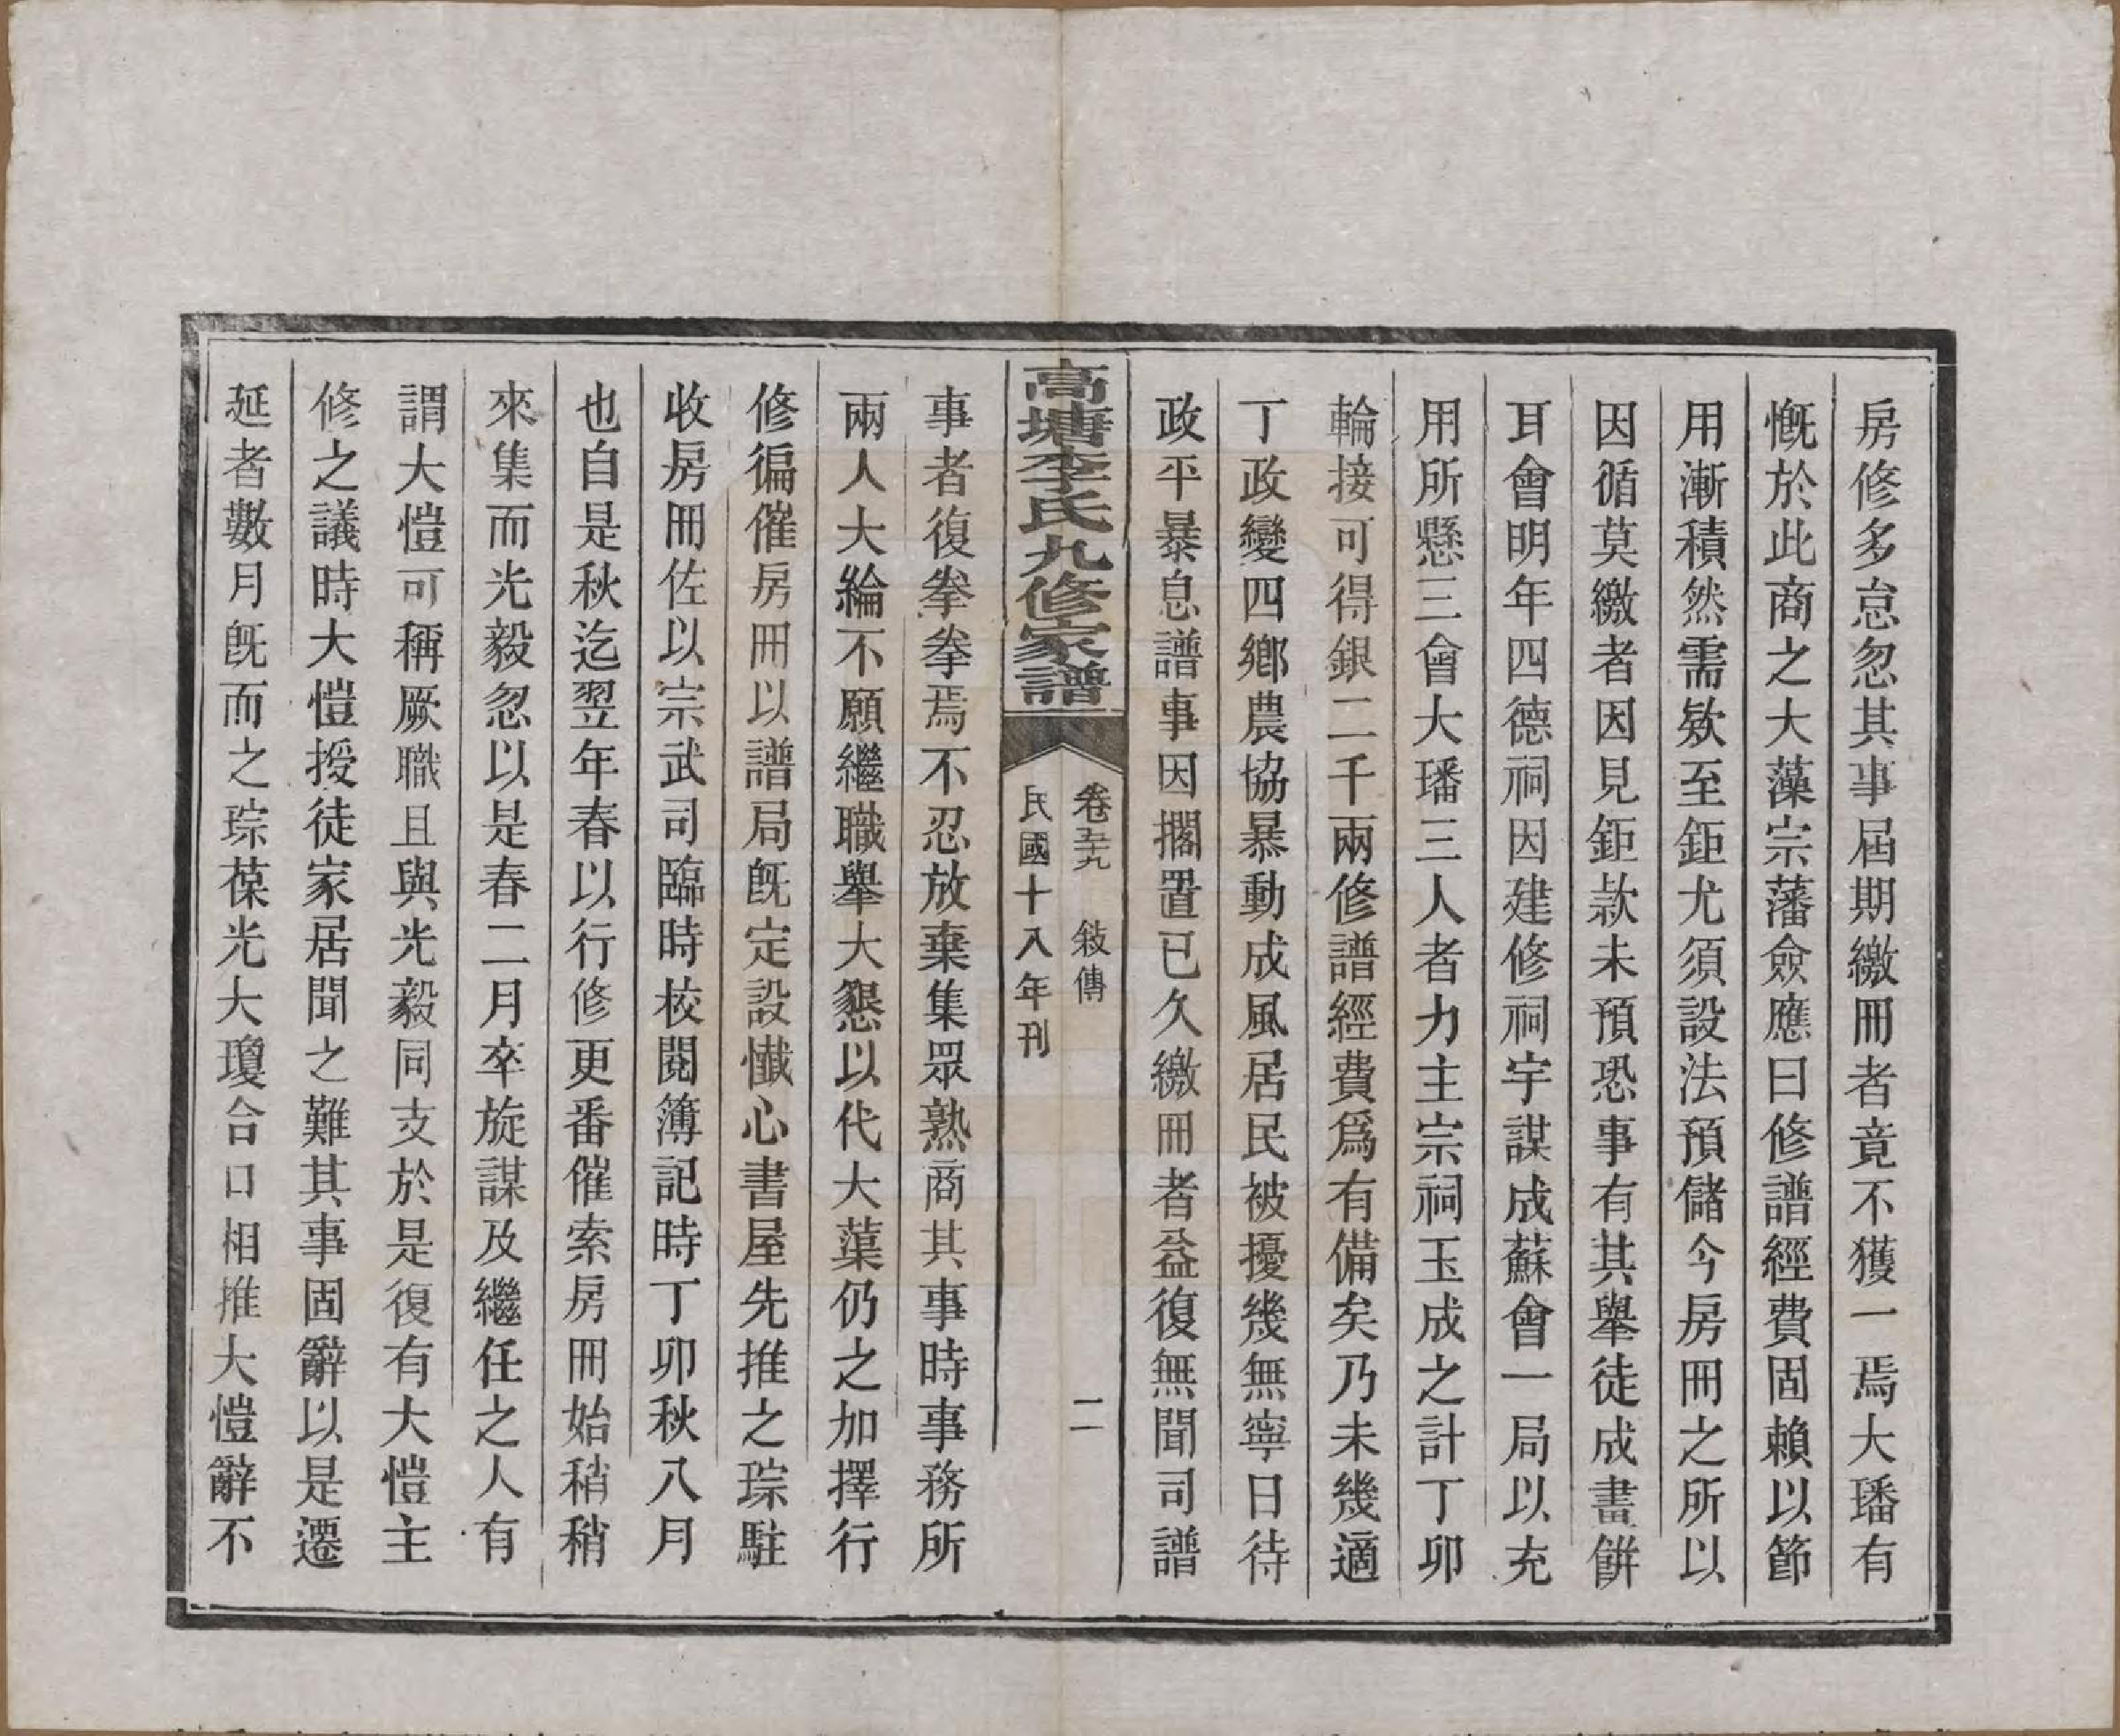 房修多怠忽其事屆期繳冊者竟不獲一焉大璠有
慨於此商之大藻宗藩僉應曰修譜經費固賴以節
用漸積然需欵至鉅尤須設法預儲今房冊之所以
因循莫繳者因見鉅款未預恐事有其舉徒成畫餅
耳會明年四德祠因建修祠宇謀成蘇會一局以充
用所懸三會大璠三人者力主宗祠玉成之計丁卯
輪接可得銀二千兩修譜經費爲有備矣乃未幾適
丁政變四鄉農協暴動成風居民被擾幾無寧日待
政平暴息譜事因擱置已久繳冊者益復無聞司譜
高塘李氏九修家譜
卷五十九 敍傳 二
民國十八年刊
事者復拳拳焉不忍放棄集眾熟商其事時事務所
兩人大綸不願繼職舉大懇以代大蕖仍之加擇行
修徧催房冊以譜局旣定設懺心書屋先推之琮駐
收房冊佐以宗武司臨時校閱簿記時丁卯秋八月
也自是秋迄翌年春以行修更番催索房冊始稍稍
來集而光毅忽以是春二月卒旋謀及繼任之人有
謂大愷可稱厥職且與光毅同支於是復有大愷主
修之議時大愷授徒家居聞之難其事固辭以是遷
延者數月旣而之琮葆光大瓊合口相推大愷辭不